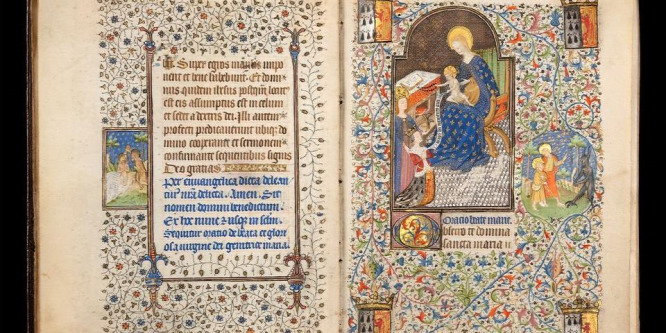 Super egros manus impo
nent et bene habebunt. Et domi
nus quidem ihesus postquam locut
est eis assumptus est in celum
et sedet a dextris dei. Illi autem
profecti predicaverunt ubique do
mino cooperante et sermonem
confirmante sequentibus signis
Deo gratias
Per euuangelica dicta delean
tur nra delicta. Amen. Sit
nomen domini benedictum.
Ex hoc nunc & usque in sclm.
Sequitur oratio de beata et glori
osa virgine dei genitrice maria.
Oratio beate marie.
bsecro te domina
sancta maria